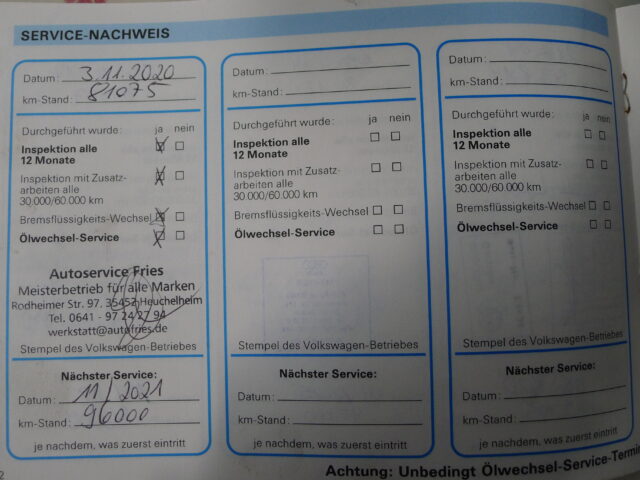 SERVICE-NACHWEIS
Datum: 3.11.2020
km-Stand: 81075
Durchgeführt wurde: ja nein
Inspektion alle
12 Monate
Inspektion mit Zusatz-
arbeiten alle
30.000/60.000 km
Bremsflüssigkeits-Wechsel
Ölwechsel-Service
Autoservice Fries
Meisterbetrieb für alle Marken
Rodheimer Str. 97, 35452 Heuchelheim
Tel. 0641 - 97 24 27 94
werkstatt@autofries.de
Stempel des Volkswagen-Betriebes
Nächster Service:
Datum: 11/2021
km-Stand: 96000
je nachdem, was zuerst eintritt
Datum:
km-Stand:
Durchgeführt wurde: ja nein
Inspektion alle
12 Monate
Inspektion mit Zusatz-
arbeiten alle
30.000/60.000 km
Bremsflüssigkeits-Wechsel
Ölwechsel-Service
Stempel des Volkswagen-Betriebes
Nächster Service:
Datum:
km-Stand:
je nachdem, was zuerst eintritt
Datum:
km-Stand:
Durchgeführt wurde: ja nein
Inspektion alle
12 Monate
Inspektion mit Zusatz-
arbeiten alle
30.000/60.000 km
Bremsflüssigkeits-Wechsel
Ölwechsel-Service
Stempel des Volkswagen-Betriebes
Nächster Service:
Datum:
km-Stand:
je nachdem, was zuerst eintritt
Achtung: Unbedingt Ölwechsel-Service-Termi
2